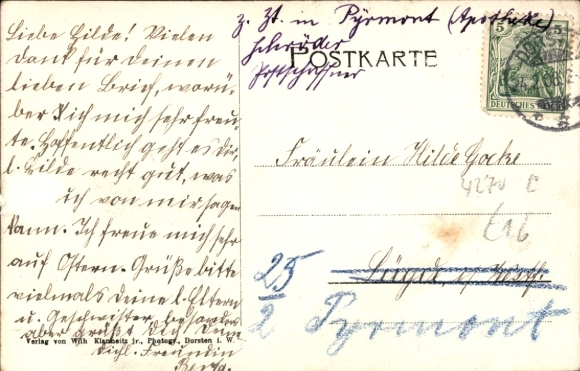 Liebe Hilde! Vielen
Dank für deinen
lieben Brief, worü-
ber ich mich sehr freu-
te. Hoffentlich geht es dir
l. Hilde recht gut, was
ich von mir sagen
kann. Ich freue mich sehr
auf Ostern. Grüße bitte
vielmals deine l. Eltern
u. Geschwister, besonders
aber grüßt dich deine
dichl. Freundin
Verlag von Wilh Klanheitz jr., Photogr., Dorsten i. W.
z. Zt. in Pyrmont (Apotheke)
Schröder
Postschaffner
POSTKARTE
5
5
DEUTSCHES REICH
Fräulein Hilde Gocke
Lügde i/Westf.
25
2
Pyrmont
E16